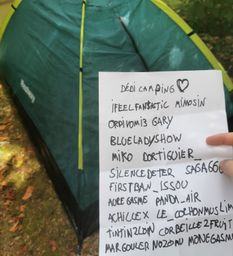 DÉDI CAMPING ♡
IFEELFANTASTIC MIMOSIN
ORDIVOMI3 GARY
BLUELADYSHOW
MIKO DORTIGUIER_
SILENCEDETER
FIRSTBAN_ISSOU
AUREGASME PANDA_AIR
ACHILLEX LE_COLHONMUSLIM
TINTIN2LDN CORBEILLE2FRUIT
MARGOULER NOZOMU MONEGASM